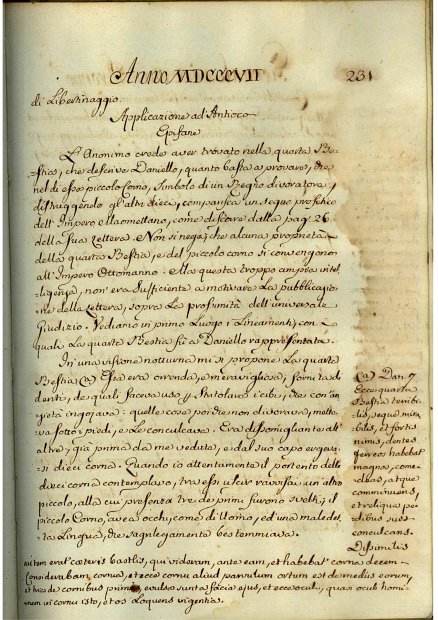 Anno MDCCCVII 231
di Libertinaggio.
Applicazione ad Antioco
Epifane
L'Anonimo crede aver trovato nella quarta Be-
stia, che descrive Daniello, quanto basta a provare, che
nel di esso piccolo Corno, Simbolo di un Regno divoratore,
distruggendo gl'altri dieci, comparisca un segno profetico
dell'Impero Maomettano, come discorre dalla pag. 26
della sua Lettera. Non si nega, che alcuna proprietà
della quarta Bestia, e del piccolo corno si convengono
all'Impero Ottomanno. Ma questa troppo ampia intel-
ligenza, non era sufficiente a motivare la pubblicazio-
ne della Lettera, sopra la prossimità dell'universale
Giudizio. Vediamo in primo Luogo i Lineamenti, con
quali la quarta Bestia fù a Daniello rappresentata.
In una visione notturna mi si propone la quarta
Bestia (a) Essa era orrenda, e meravigliosa, fornita di
denti, de quali faceva uso
i cibi, che con an-
gietà ingojava: quelle cose poi che non divorava, mette-
va sotto i piedi, e le conculcava. Era dissomigliante all'
altre, già prima da me vedute, e dal suo capo ergeva-
si dieci corna. Quando io attentamente il portento delle
dieci corna contemplavo, tra essi uscir ravvisai un altro
piccolo, alla cui presenza tre dei primi furono svelti; il
piccolo Corno, avea occhi, come di Uomo, ed una maledet-
ta Lingua, che sagrilegamente bestemmiava.
(a) Dan. 7
Ecce quarta
Bestia terribi-
lis, atque mira-
bilis, et fortis
nimis, dentes
ferreos habebat
magnos, come-
dens, atque
comminuens,
et reliqua pe-
dibus suis
conculcans.
Dissimilis
autem erat cæteris bestiis, quas videram, ante eam, et habebat corna decem-
Considerabam corna, et ecce cornu aliud parvulum ortum est de medio eorum,
et tria de cornibus primis, evulsa sunt a facie ejus, et ecce oculi, quasi oculi homi-
erant in cornu isto, et os Loquens ingentia.